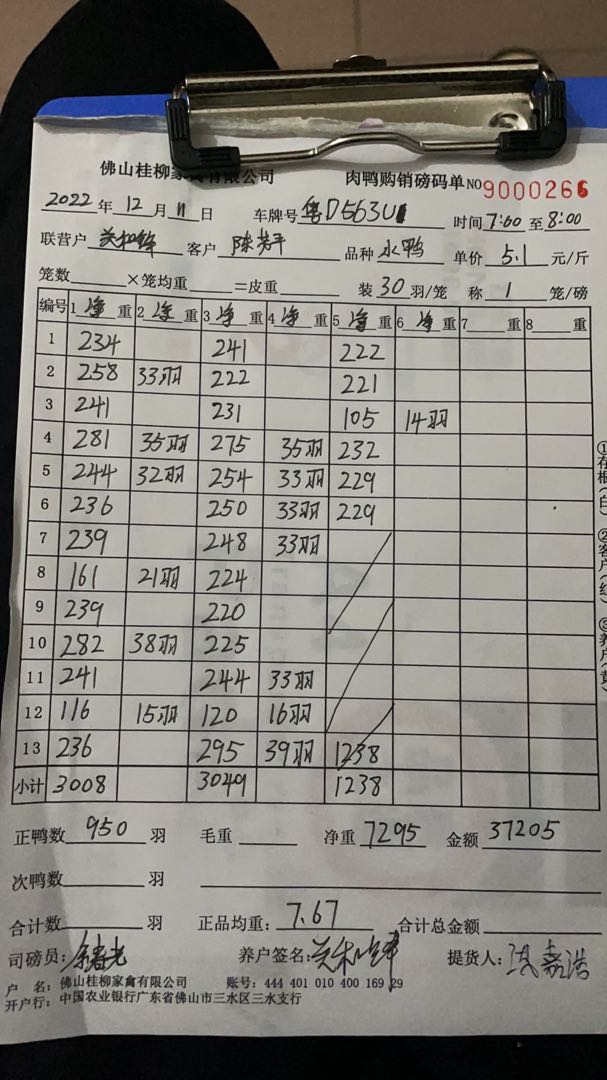 佛山桂柳家禽有限公司 肉鸭购销磅码单 NO 9000266
2022年12月11日 车牌号 粤D563U 时间 7:00 至 8:00
联营户 客户 陈 品种 水鸭 单价 5.1 元/斤
笼数 ×笼均重 =皮重 装 30 羽/笼 称 1 笼/磅
编号 1 净 重 2 净 重 3 净 重 4 净 重 5 净 重 6 净 重 7 重 8 重
1 234 241 222
2 258 33羽 222 221
3 241 231 105 14羽
4 281 35羽 275 35羽 232
5 244 32羽 254 33羽 229
6 236 250 33羽 229
7 239 248 33羽
8 161 21羽 224
9 239 220
10 282 38羽 225
11 241 244 33羽
12 116 15羽 120 16羽
13 236 295 39羽 1238
小计 3008 3049 1238
正鸭数 950 羽 毛重 净重 7295 金额 37205
次鸭数 羽
合计数 羽 正品均重: 7.67 合计总金额
司磅员: 养户签名: 提货人: 嘉浩
户 名: 佛山桂柳家禽有限公司 账号: 444 401 010 400 169 29
开户行: 中国农业银行广东省佛山市三水区三水支行
①存根(白) ②客户(红) ③养户(黄